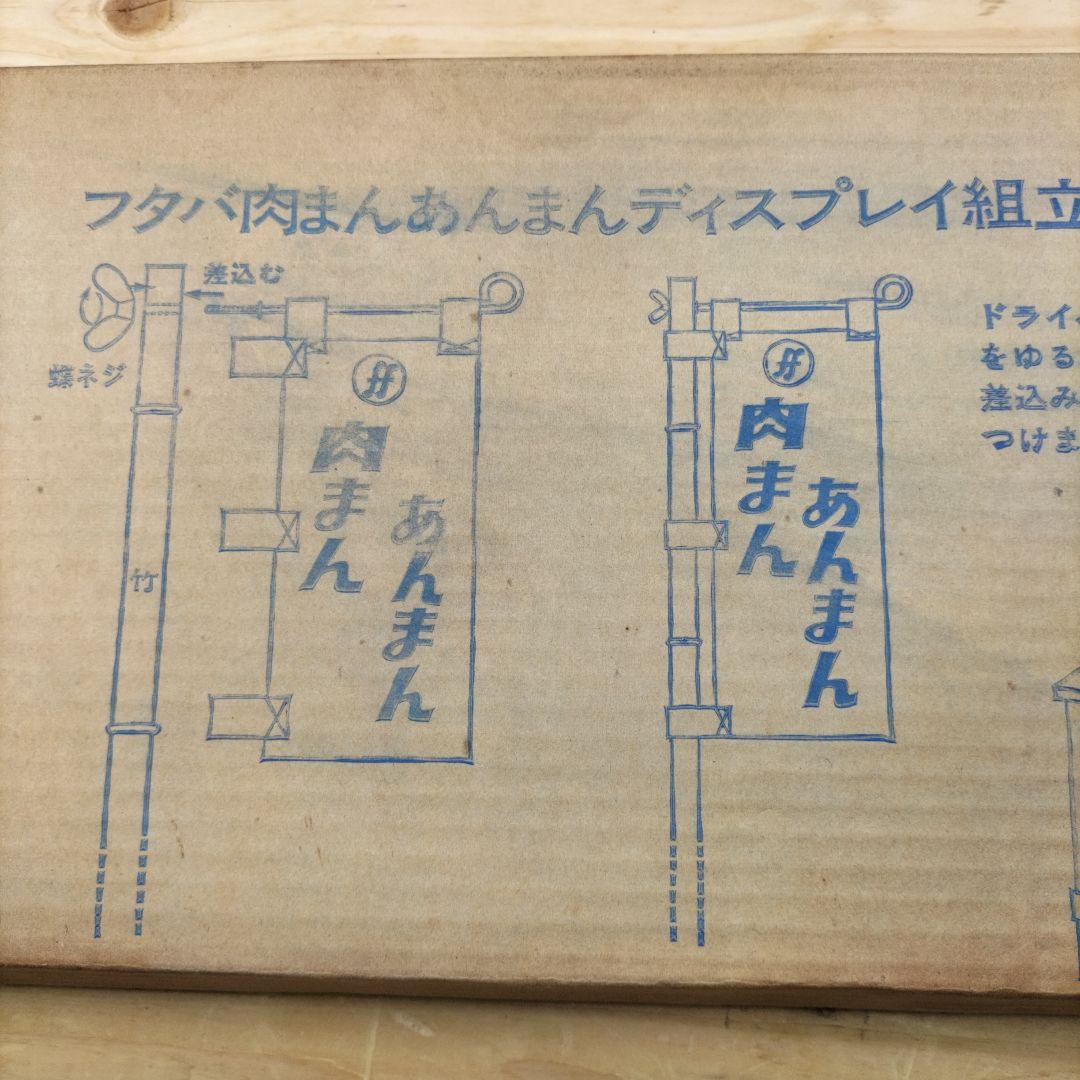 フタバ肉まんあんまんディスプレイ組立
差込む
蝶ネジ
竹
ff
肉まん
あんまん
ff
肉まん
あんまん
ドライ
をゆる
差込み
つけま